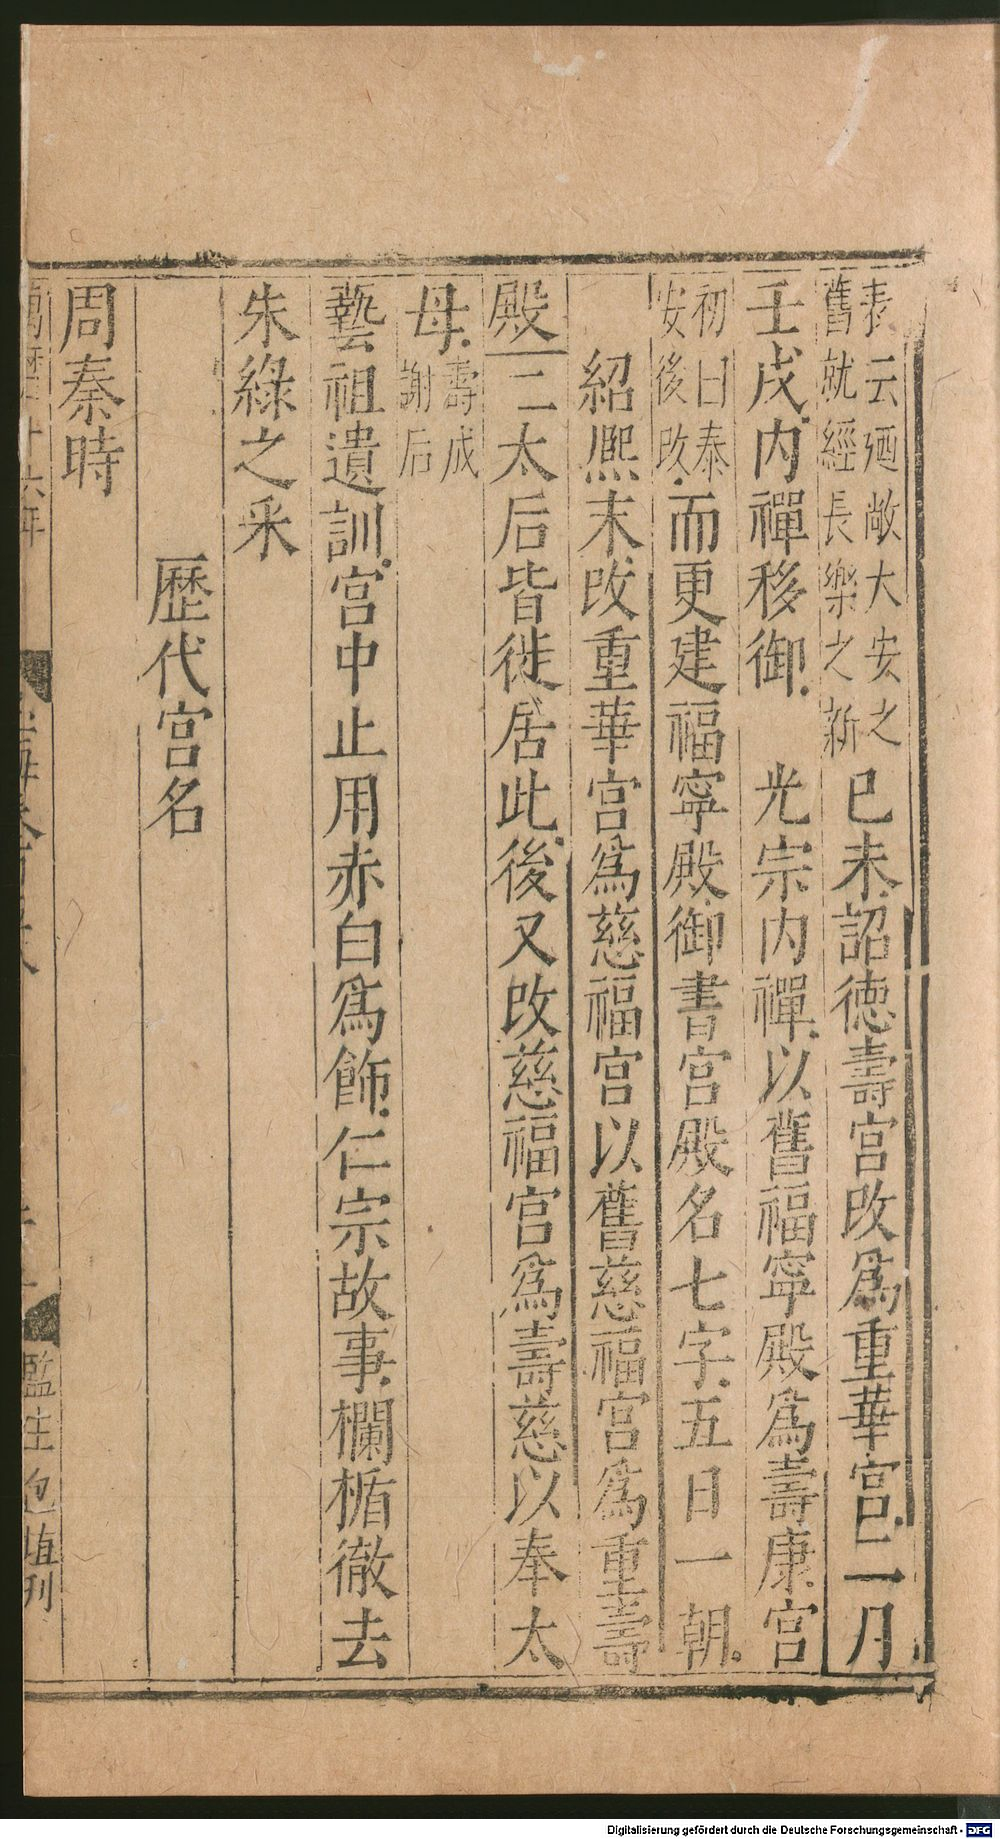 表云廼敞大安之
舊就經長樂之新
已未詔徳壽宫改爲重華宫二月
壬戌内禪移御 光宗内禪以舊福寧殿爲壽康宫
初曰泰
安後改
而更建福寧殿御書宫殿名七字五日一朝
紹熈末改重華宫爲慈福宫以舊慈福宫爲重壽
殿二太后皆徙居此後又改慈福宫爲壽慈以奉太
母
壽成
謝后
藝祖遺訓宫中止用赤白爲飾仁宗故事欄楯徹去
朱綠之采
歷代宫名
周秦時
十六年
監生
刊
Digitalisierung gefördert durch die Deutsche Forschungsgemeinschaft - DFG